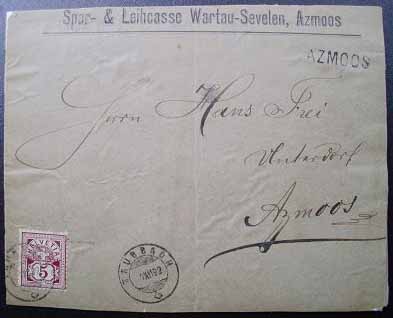 Spar- & Leihcasse Wartau-Sevelen, Azmoos
AZMOOS
Herrn Hans Frei
Unterdorf
Azmoos
HELVETIA
5